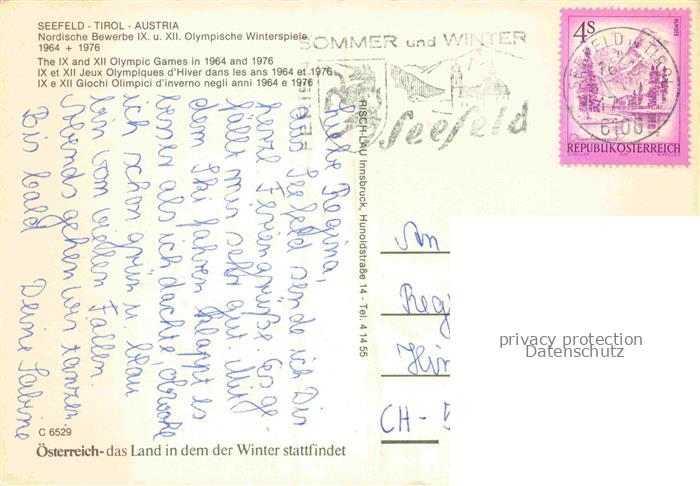 SEEFELD - TIROL - AUSTRIA
Nordische Bewerbe IX. u. XII. Olympische Winterspiele
1964 + 1976
The IX and XII Olympic Games in 1964 and 1976
IX et XII Jeux Olympiques d'Hiver dans les ans 1964 et 1976
IX e XII Giochi Olimpici d'inverno negli anni 1964 e 1976
Liebe Regina,
aus Seefeld sende ich Dir
herzl. Feriengrüße. Es ge-
fällt mir sehr gut. Mit
dem Ski fahren klappt es
besser als ich dachte, obwohl
ich schon grün u. blau
bin vom vielen Fallen.
Abends gehen wir tanzen.
Bis bald Deine Sabine
C 6529
Österreich - das Land in dem der Winter stattfindet
RISCH-LAU Innsbruck, Hunoldstraße 14 - Tel. 41455
FERIEN
SOMMER und WINTER
Seefeld
SEEFELD IN TIROL
6100
4S
ALMSEE
REPUBLIK ÖSTERREICH
An
Reg
Hin
CH-5
privacy protection
Datenschutz